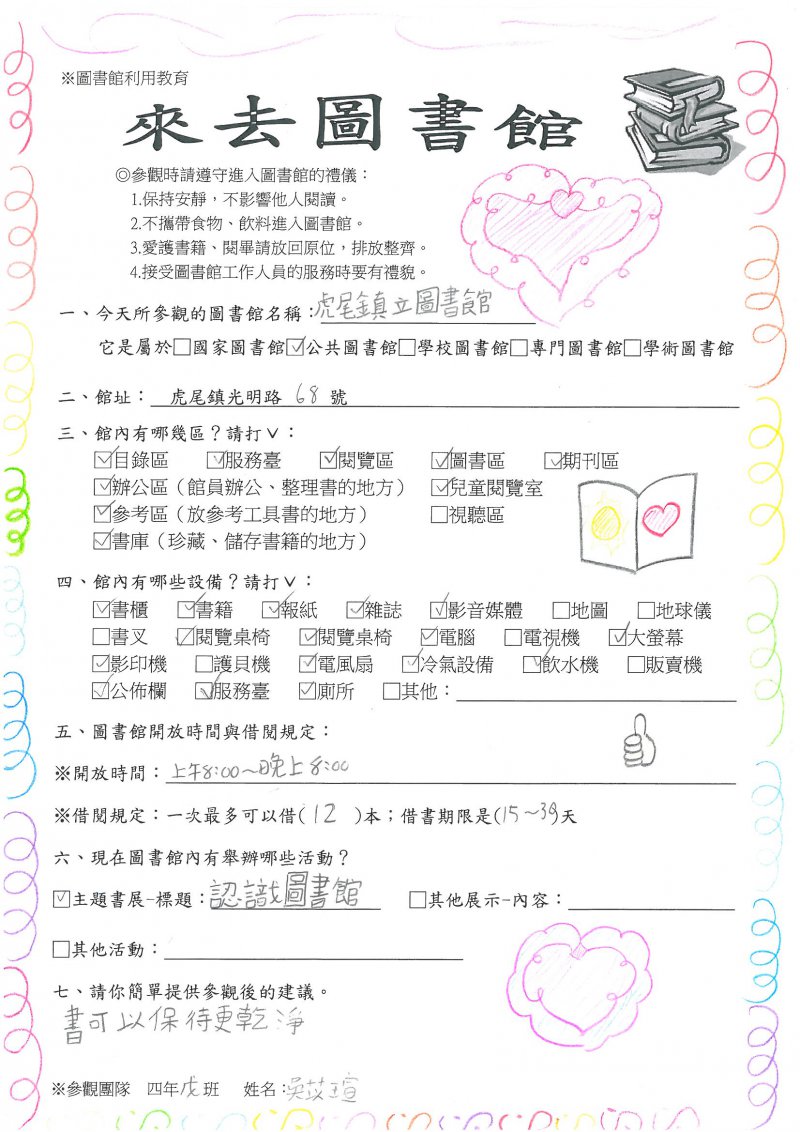 ※圖書館利用教育
來去圖書館
◎參觀時請遵守進入圖書館的禮儀：
1.保持安靜，不影響他人閱讀。
2.不攜帶食物、飲料進入圖書館。
3.愛護書籍、閱畢請放回原位，排放整齊。
4.接受圖書館工作人員的服務時要有禮貌。
一、今天所參觀的圖書館名稱：虎尾鎮立圖書館
它是屬於□國家圖書館☑公共圖書館□學校圖書館□專門圖書館□學術圖書館
二、館址：虎尾鎮光明路 68 號
三、館內有哪幾區？請打∨：
☑目錄區 ☑服務臺 ☑閱覽區 ☑圖書區 ☑期刊區
☑辦公區（館員辦公、整理書的地方） ☑兒童閱覽室
☑參考區（放參考工具書的地方） □視聽區
☑書庫（珍藏、儲存書籍的地方）
四、館內有哪些設備？請打∨：
☑書櫃 ☑書籍 ☑報紙 ☑雜誌 ☑影音媒體 □地圖 □地球儀
□書叉 ☑閱覽桌椅 ☑閱覽桌椅 ☑電腦 □電視機 ☑大螢幕
☑影印機 □護貝機 ☑電風扇 ☑冷氣設備 ☑飲水機 □販賣機
☑公佈欄 ☑服務臺 ☑廁所 □其他：
五、圖書館開放時間與借閱規定：
※開放時間：上午8:00～晚上8:00
※借閱規定：一次最多可以借(12)本；借書期限是(15～30)天
六、現在圖書館內有舉辦哪些活動？
☑主題書展-標題：認識圖書館 □其他展示-內容：
□其他活動：
七、請你簡單提供參觀後的建議。
書可以保待更乾淨
※參觀團隊 四年戊班 姓名：吳苡瑄